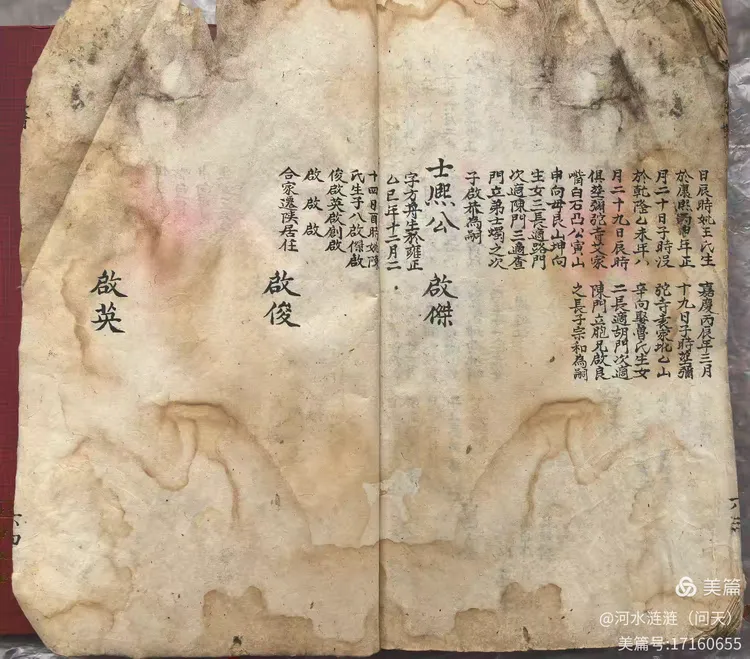 日辰時妣王氏生
於康熙丙申年正
月二十日子時沒
於乾隆乙未年八
月二十九日辰時
俱塟彌陀寺袁家
嘴白石凸公寅山
申向毋艮山坤向
生女三長適路門
次適陳門三適查
門立弟士燭之次
子啟恭為嗣
嘉慶丙辰年三月
十九日子時塟彌
陀寺袁家坳乙山
辛向娶魯氏生女
二長適胡門次適
陳門立胞兄啟良
之長子宗和為嗣
士熙公
字文舟生於雍正
乙巳年十二月二
十四日酉時娶陳
氏生子八啟傑啟
俊啟英啟創啟
啟 啟 啟
合家遷陝居住
啟傑
啟俊
啟英
美篇
@河水涟涟（问天）
美篇号:17160655